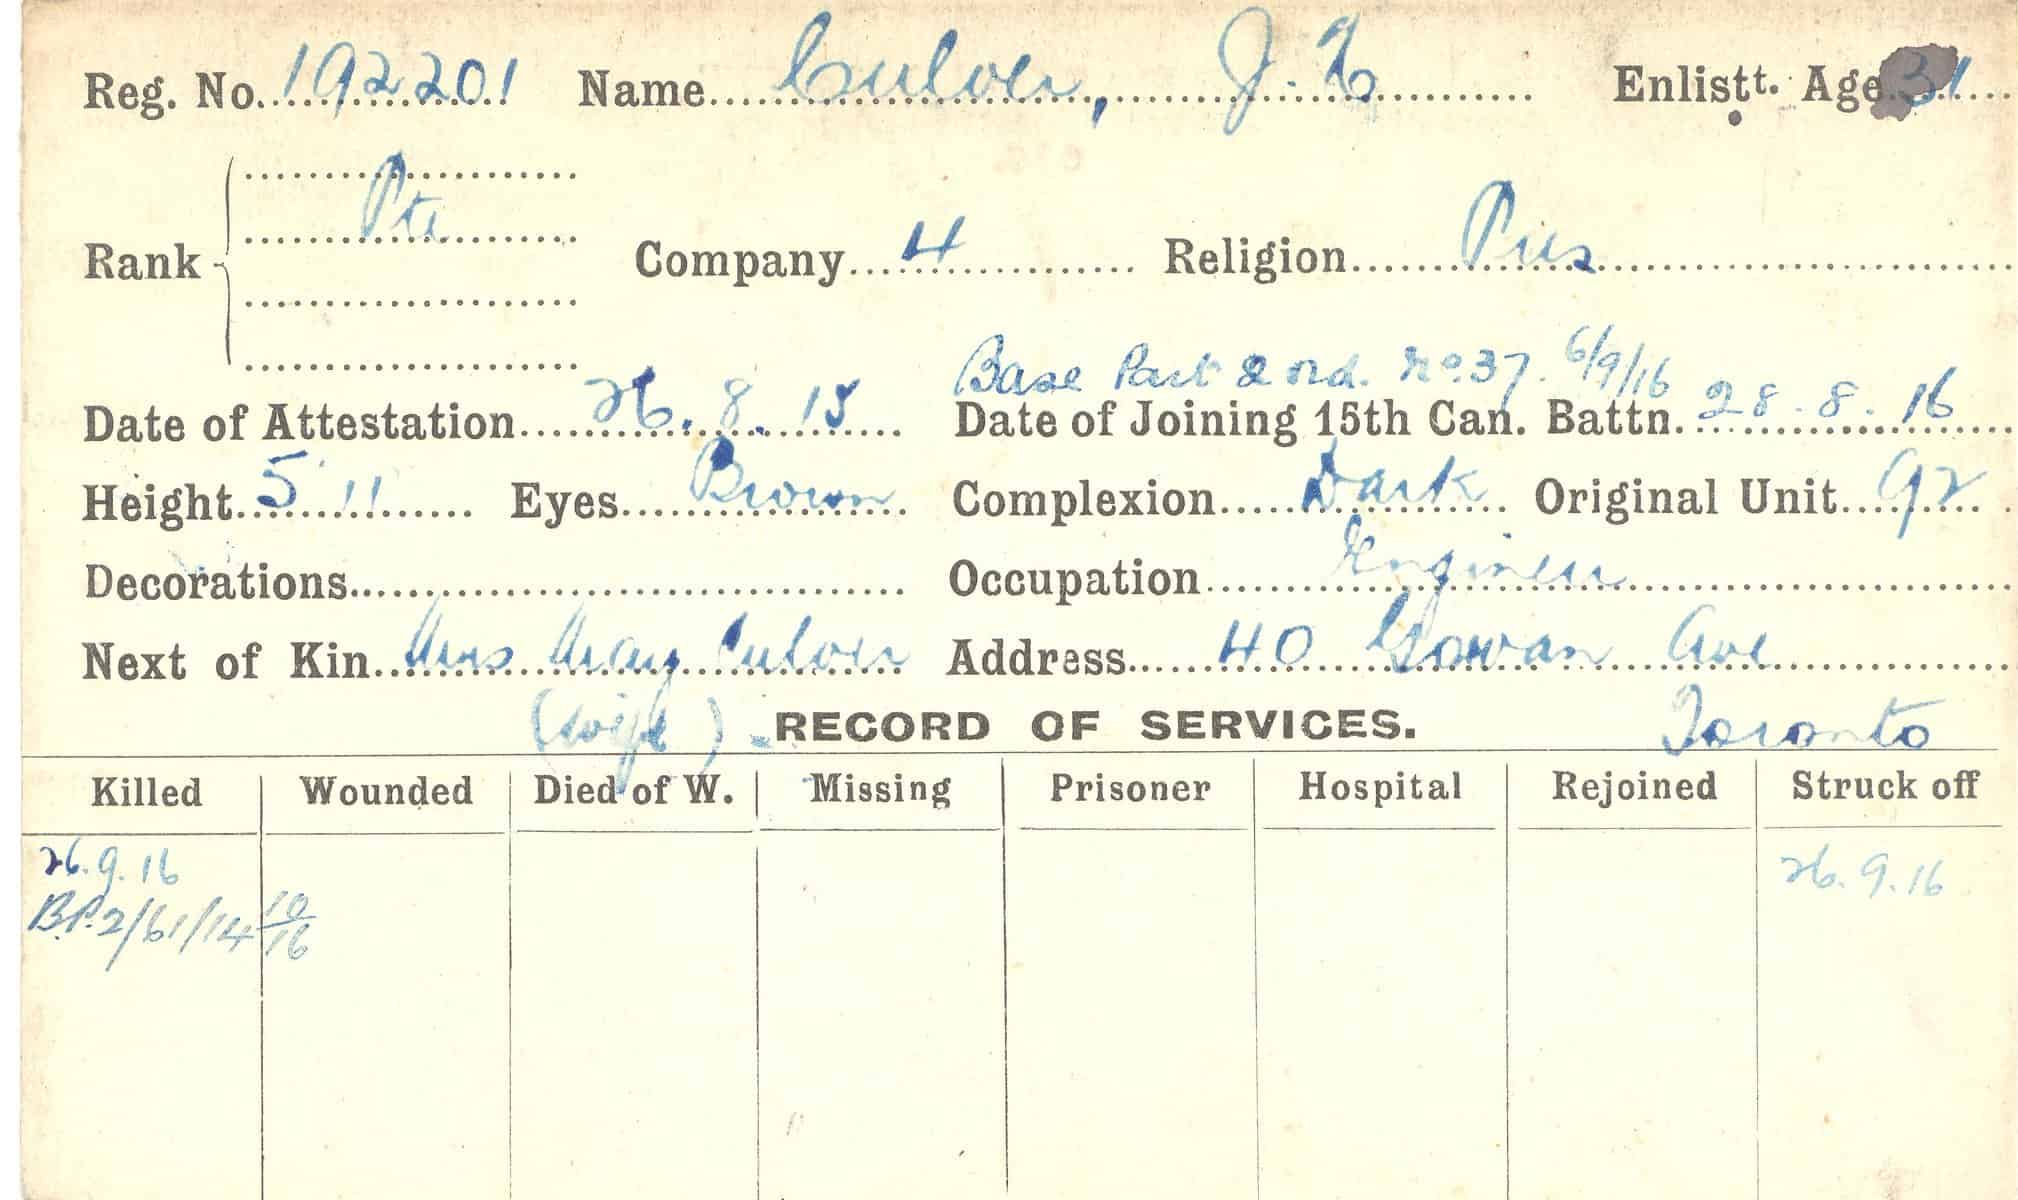 Reg. No. 192201 Name Culver, J. E Enlistt. Age 31
Pte
Rank Company 4 Religion Pres
Base Part 2 ord. No. 37. 6/9/16
Date of Attestation 26. 8. 15 Date of Joining 15th Can. Battn. 28. 8. 16
Height 5' 11 Eyes Brown Complexion Dark Original Unit 92
Decorations Occupation Engineer
Next of Kin Mrs May Culver Address 40 Gowan Ave
(wife) RECORD OF SERVICES. Toronto
Killed Wounded Died of W. Missing Prisoner Hospital Rejoined Struck off
26. 9. 16 26. 9. 16
B.P. 2/61/14 10/16